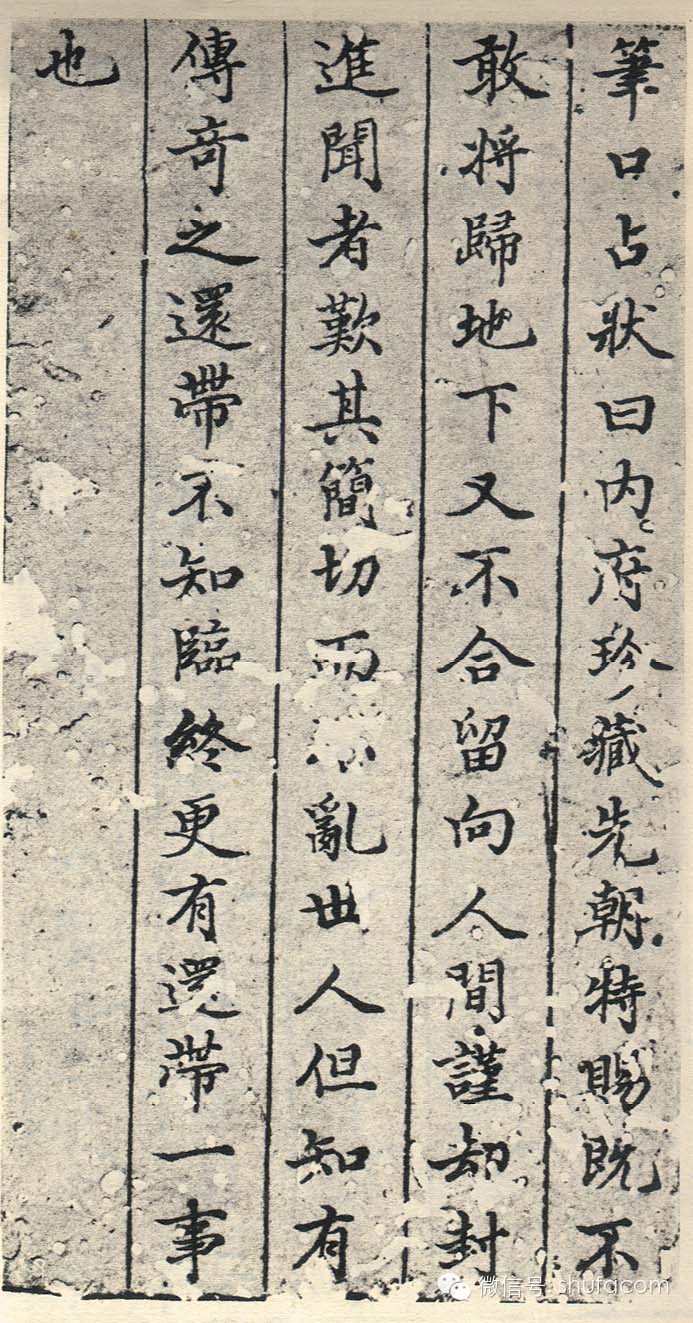 筆口占狀曰内府珍藏先朝特賜既不
敢将歸地下又不合留向人間謹却封
進聞者歎其簡切而不亂世人但知有
傳奇之還帶不知臨終更有還帶一事
也
微信号: shufacom